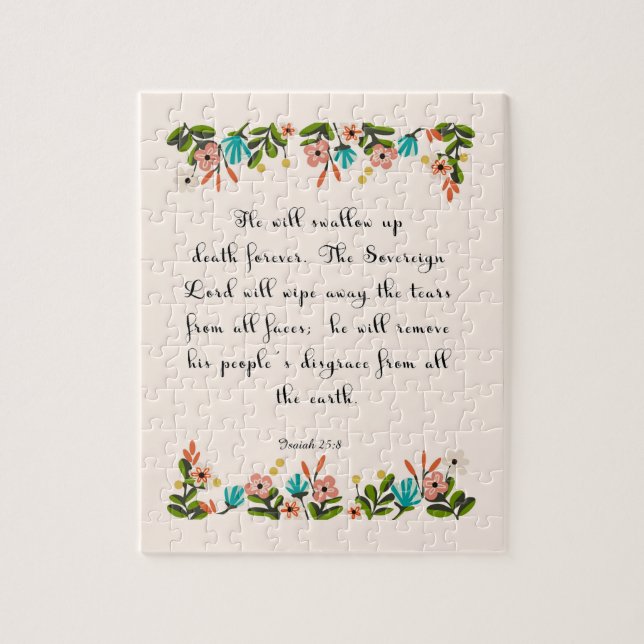 He will swallow up
death forever. The Sovereign
Lord will wipe away the tears
from all faces; he will remove
his people's disgrace from all
the earth.
Isaiah 25:8